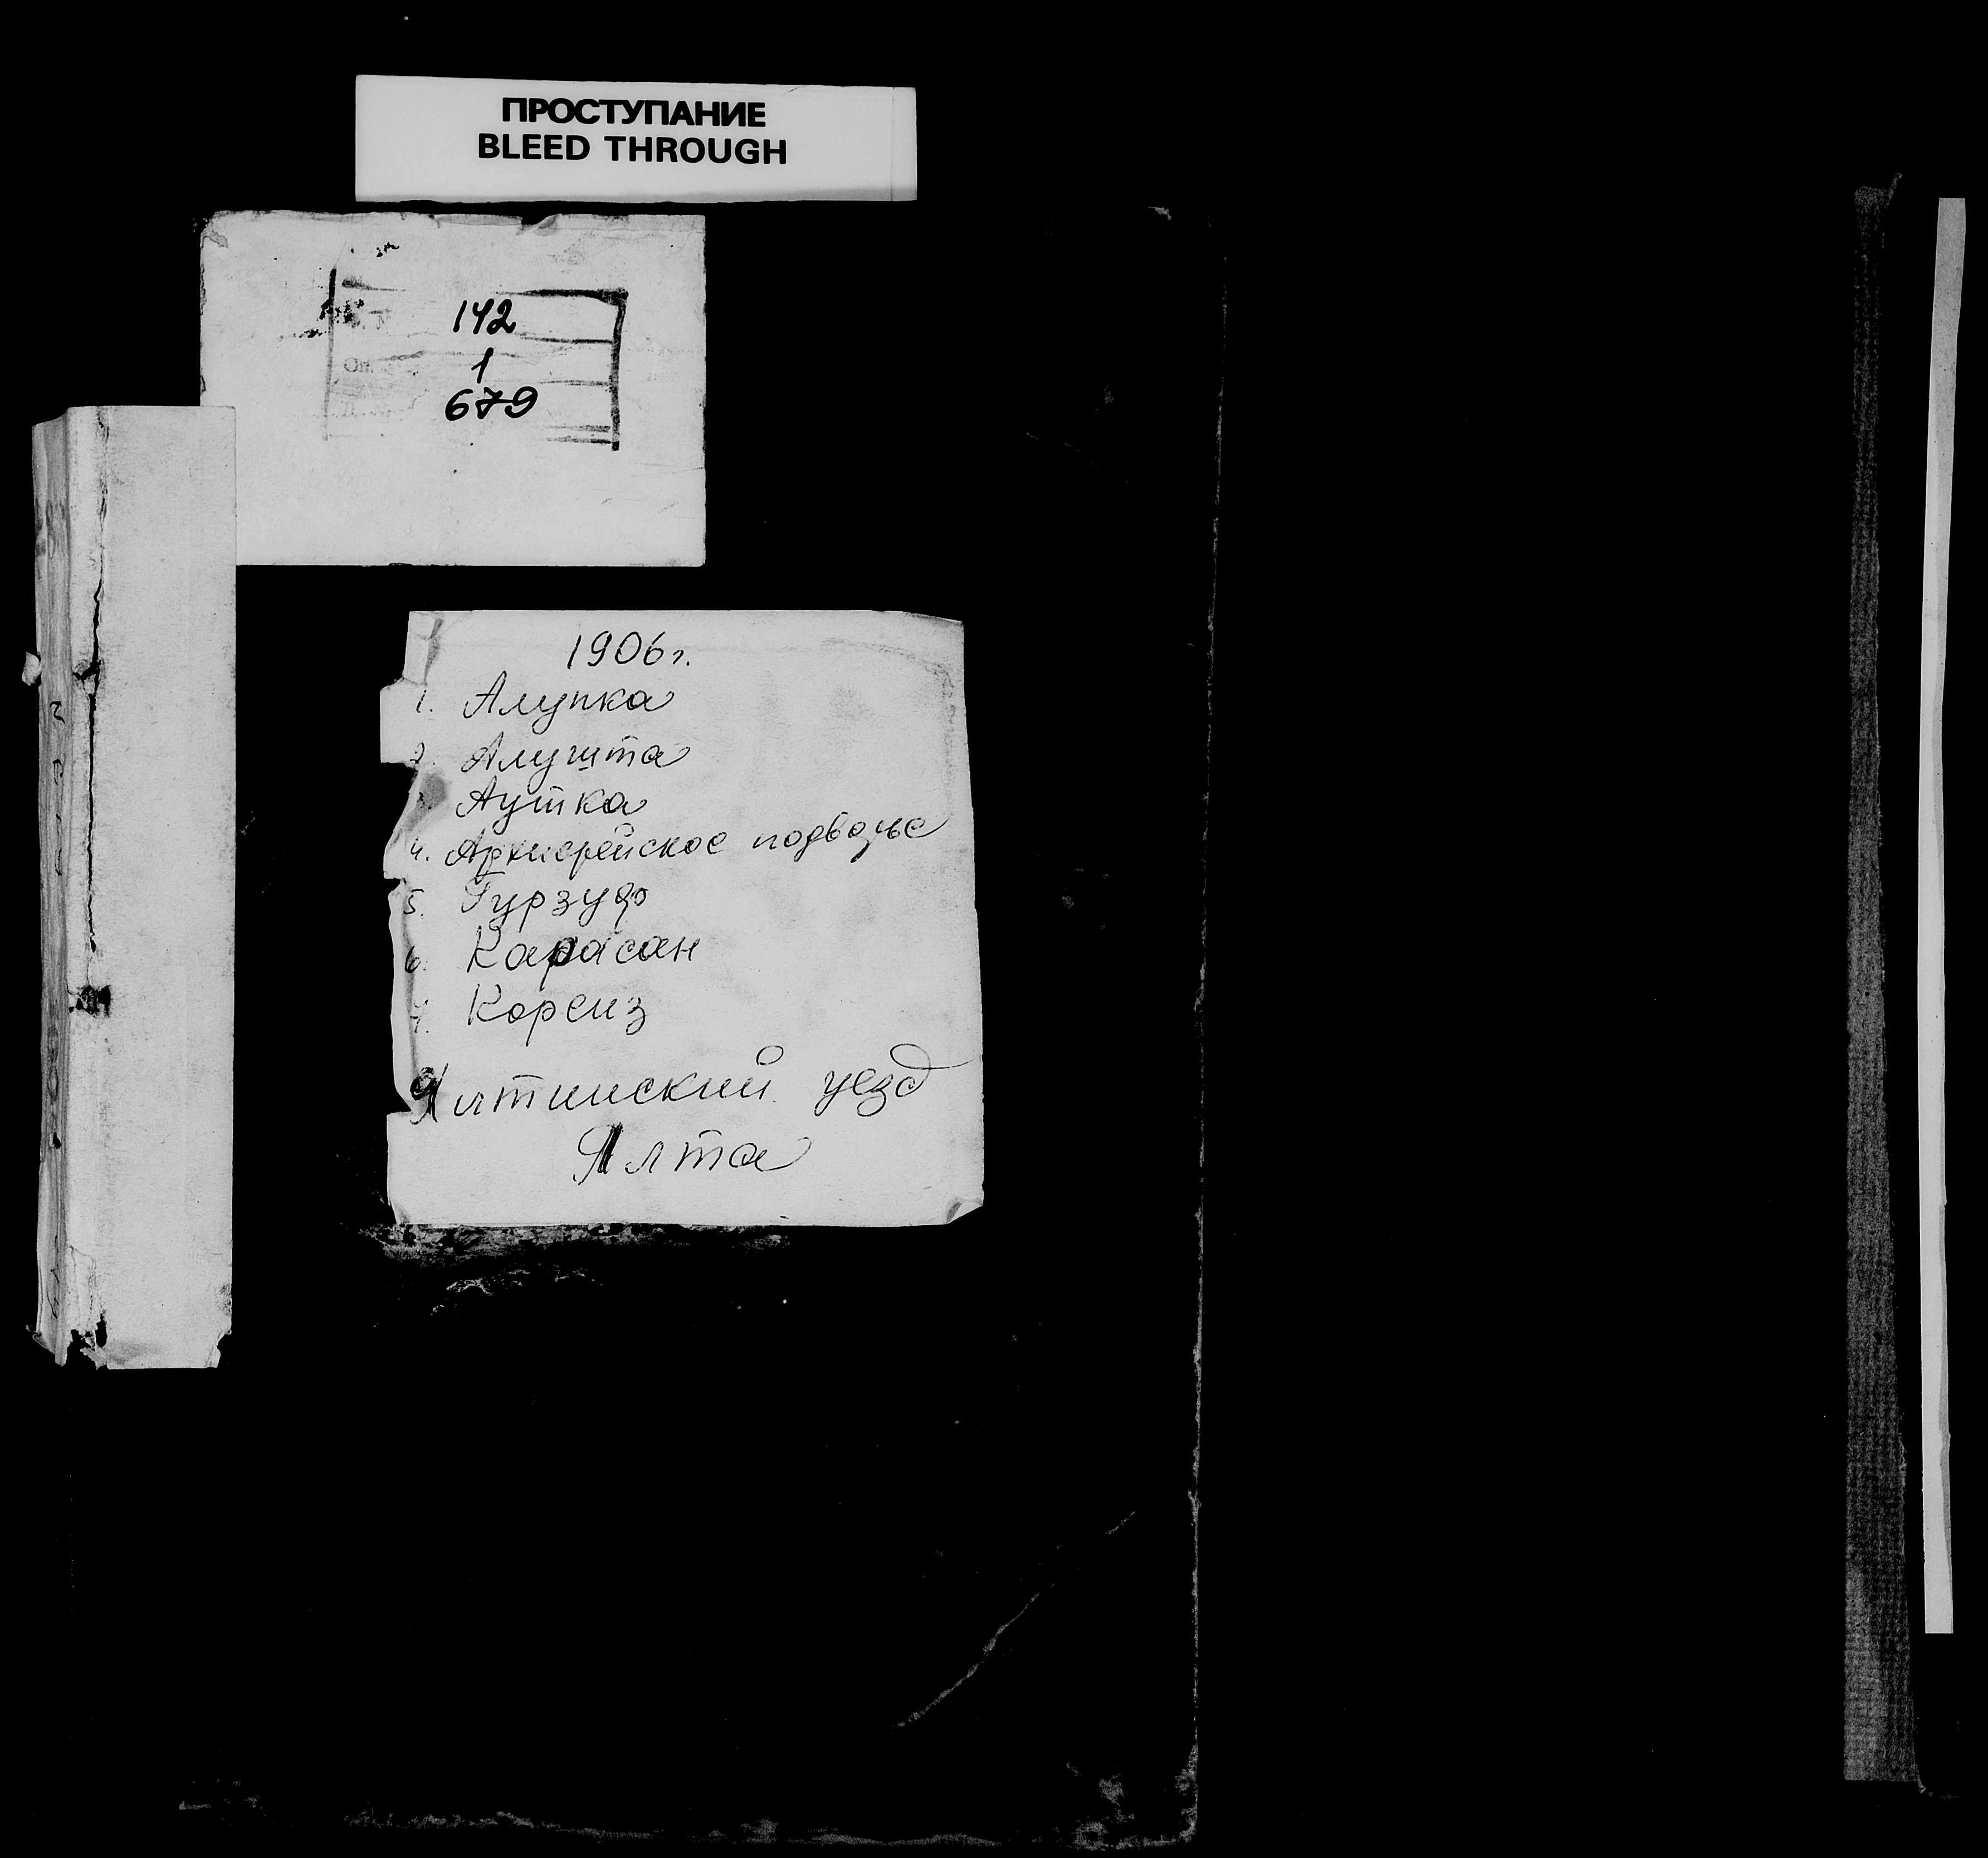 ПРОСТУПАНИЕ
BLEED THROUGH
142
Оп. 1
679
1906 г.
1. Алупка
2. Алушта
3. Аутка
4. Архиерейское подворье
5. Гурзуф
6. Карасан
7. Кореиз
Ялтинский уезд
Ялта